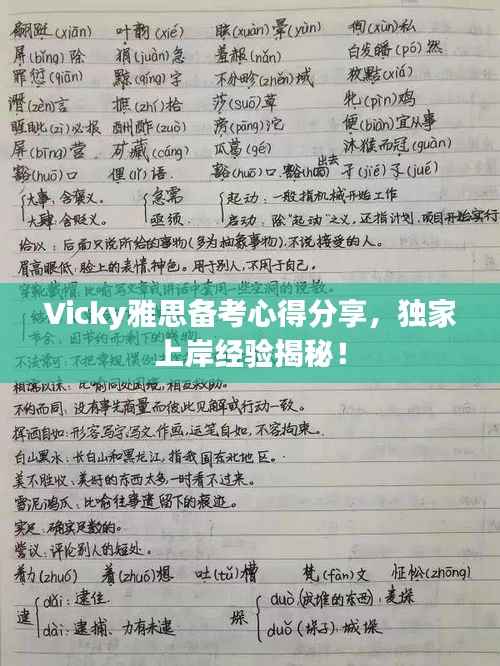 翩跹(xiān) 叶韵(xié) 眩(xuàn)晕(yùn) 徇(xùn)私
屏(bǐng)除 狷(juàn)急 羞赧(nǎn) 白发皤(pó)然
罪愆(qiān) 黥(qíng)字 不分畛(zhěn)域 狡黠(xiá)
谮(zèn)言 摭(zhí)拾 莎(suō)草 牝(pìn)鸡
睚眦(zì)必报 酬酢(zuò) 滂(pāng)沱 便(biàn)宜从事
屏(bǐng)营 矿藏(cáng) 瓜葛(gé) 沐猴而冠(guàn)
豁(huò)口 俚(lǐ)语 豁(huō)口 豁(huō)出去 孑(jié)孓(jué)
大事:含褒义。 急需 起动:一般指机械开始工作
大肆:含贬义。 亟须 启动:除"起动"之义,还指计划、项目开始实行
给以:后面只说所给的事物(多为抽象事物),不说接受的人。
眉高眼低:脸上的表情,神色。用于别人,不用于自己。
Vicky雅思备考心得分享,独家
上岸经验揭秘!
相濡以沫:比喻同处困境,相互救助。
不约而同:没有事先商量而彼此见解或行动一致。
挥洒自如:形容写字,写文,作画,运笔自如,不容拘束。
白山黑水:长白山和黑龙江,指我国东北地区。
美不胜收:美好的东西太多一时看不过来。
雪泥鸿爪:比喻往事遗留下的痕迹。
实足:确实足数的。
訾议:评论别人的短处。
着力(zhuó) 着(zhuó)想 吐(tǔ)槽 梵(fàn)文 怔忪(zhōng)
逮 dǎi:逮住 垛 duǒ(成堆的东西):麦垛
dài:逮捕、力有未逮 duǒ(垛子):城垛